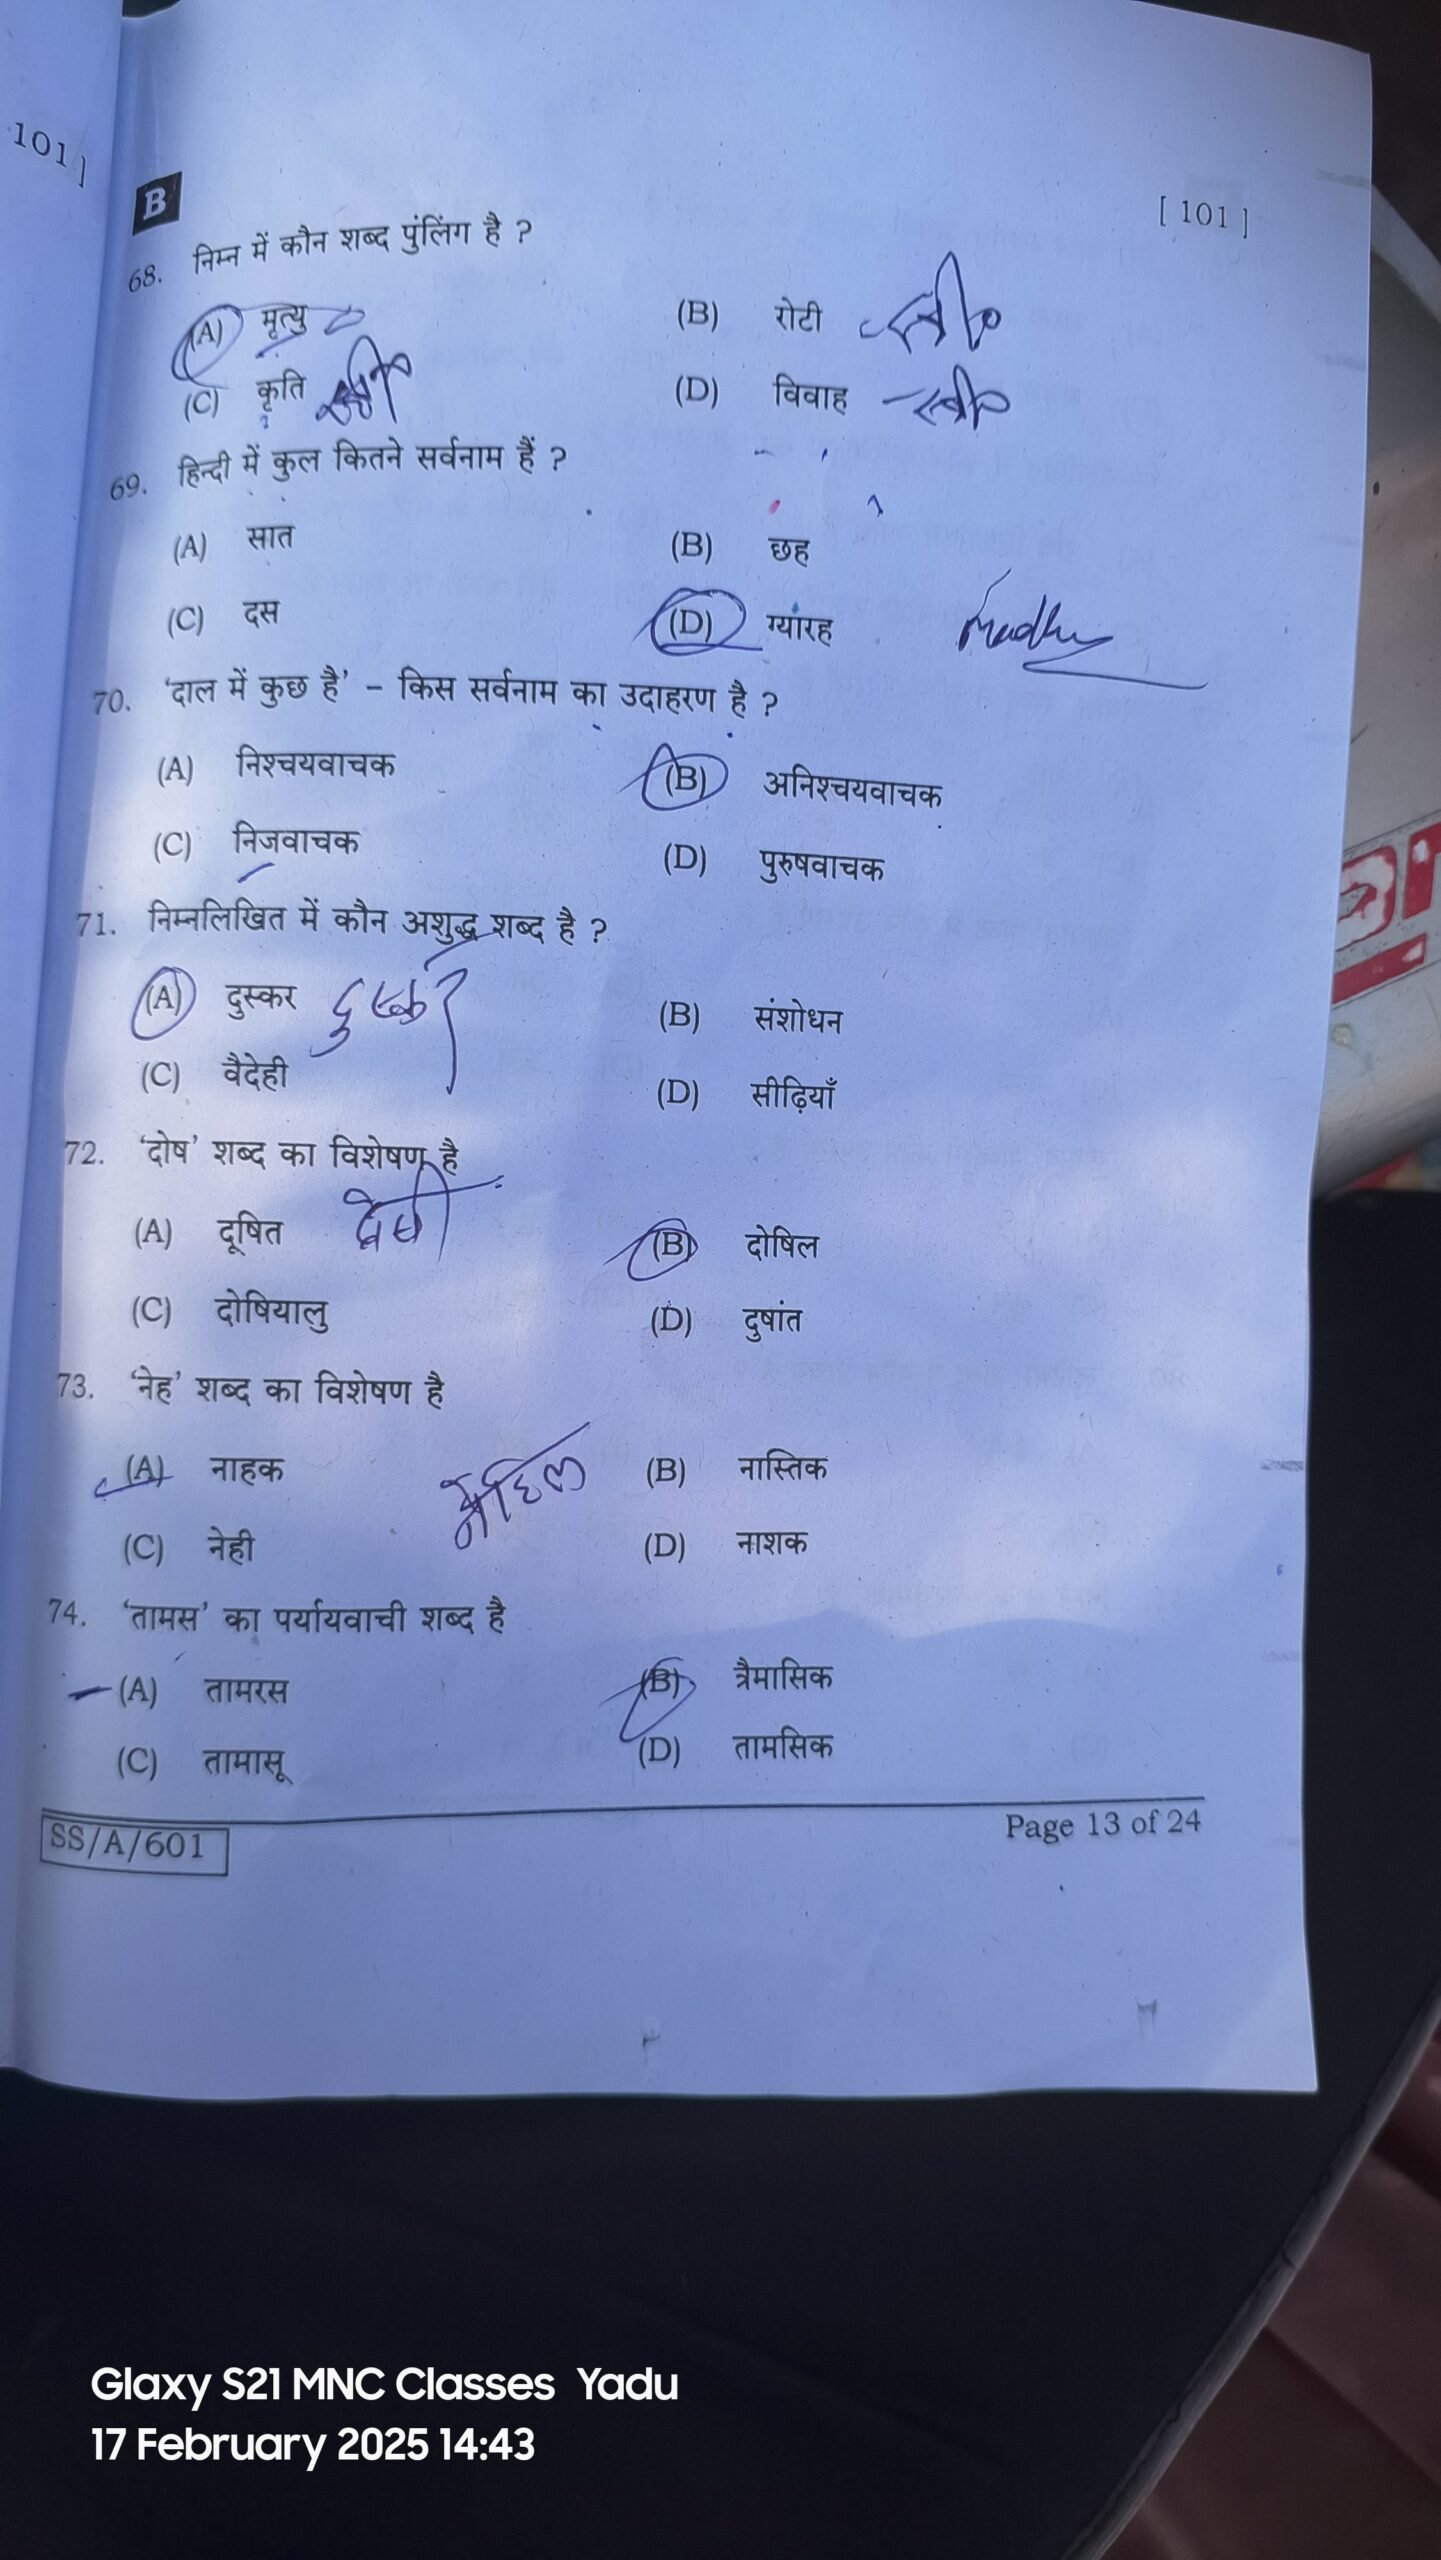 101]
B
[ 101 ]
68. निम्न में कौन शब्द पुंलिंग है ?
(A) मृत्यु (B) रोटी स्त्री०
(C) कृति स्त्री० (D) विवाह – स्त्री०
69. हिन्दी में कुल कितने सर्वनाम हैं ?
(A) सात (B) छह
(C) दस (D) ग्यारह
madhu
70. 'दाल में कुछ है' – किस सर्वनाम का उदाहरण है ?
(A) निश्चयवाचक (B) अनिश्चयवाचक
(C) निजवाचक (D) पुरुषवाचक
71. निम्नलिखित में कौन अशुद्ध शब्द है ?
(A) दुस्कर (B) संशोधन
(C) वैदेही (D) सीढ़ियाँ
72. 'दोष' शब्द का विशेषण है
(A) दूषित (B) दोषिल
(C) दोषियालु (D) दुषांत
73. 'नेह' शब्द का विशेषण है
(A) नाहक (B) नास्तिक
(C) नेही (D) नाशक
74. 'तामस' का पर्यायवाची शब्द है
(A) तामरस (B) त्रैमासिक
(C) तामासू (D) तामसिक
SS/A/601
Page 13 of 24
Glaxy S21 MNC Classes Yadu
17 February 2025 14:43